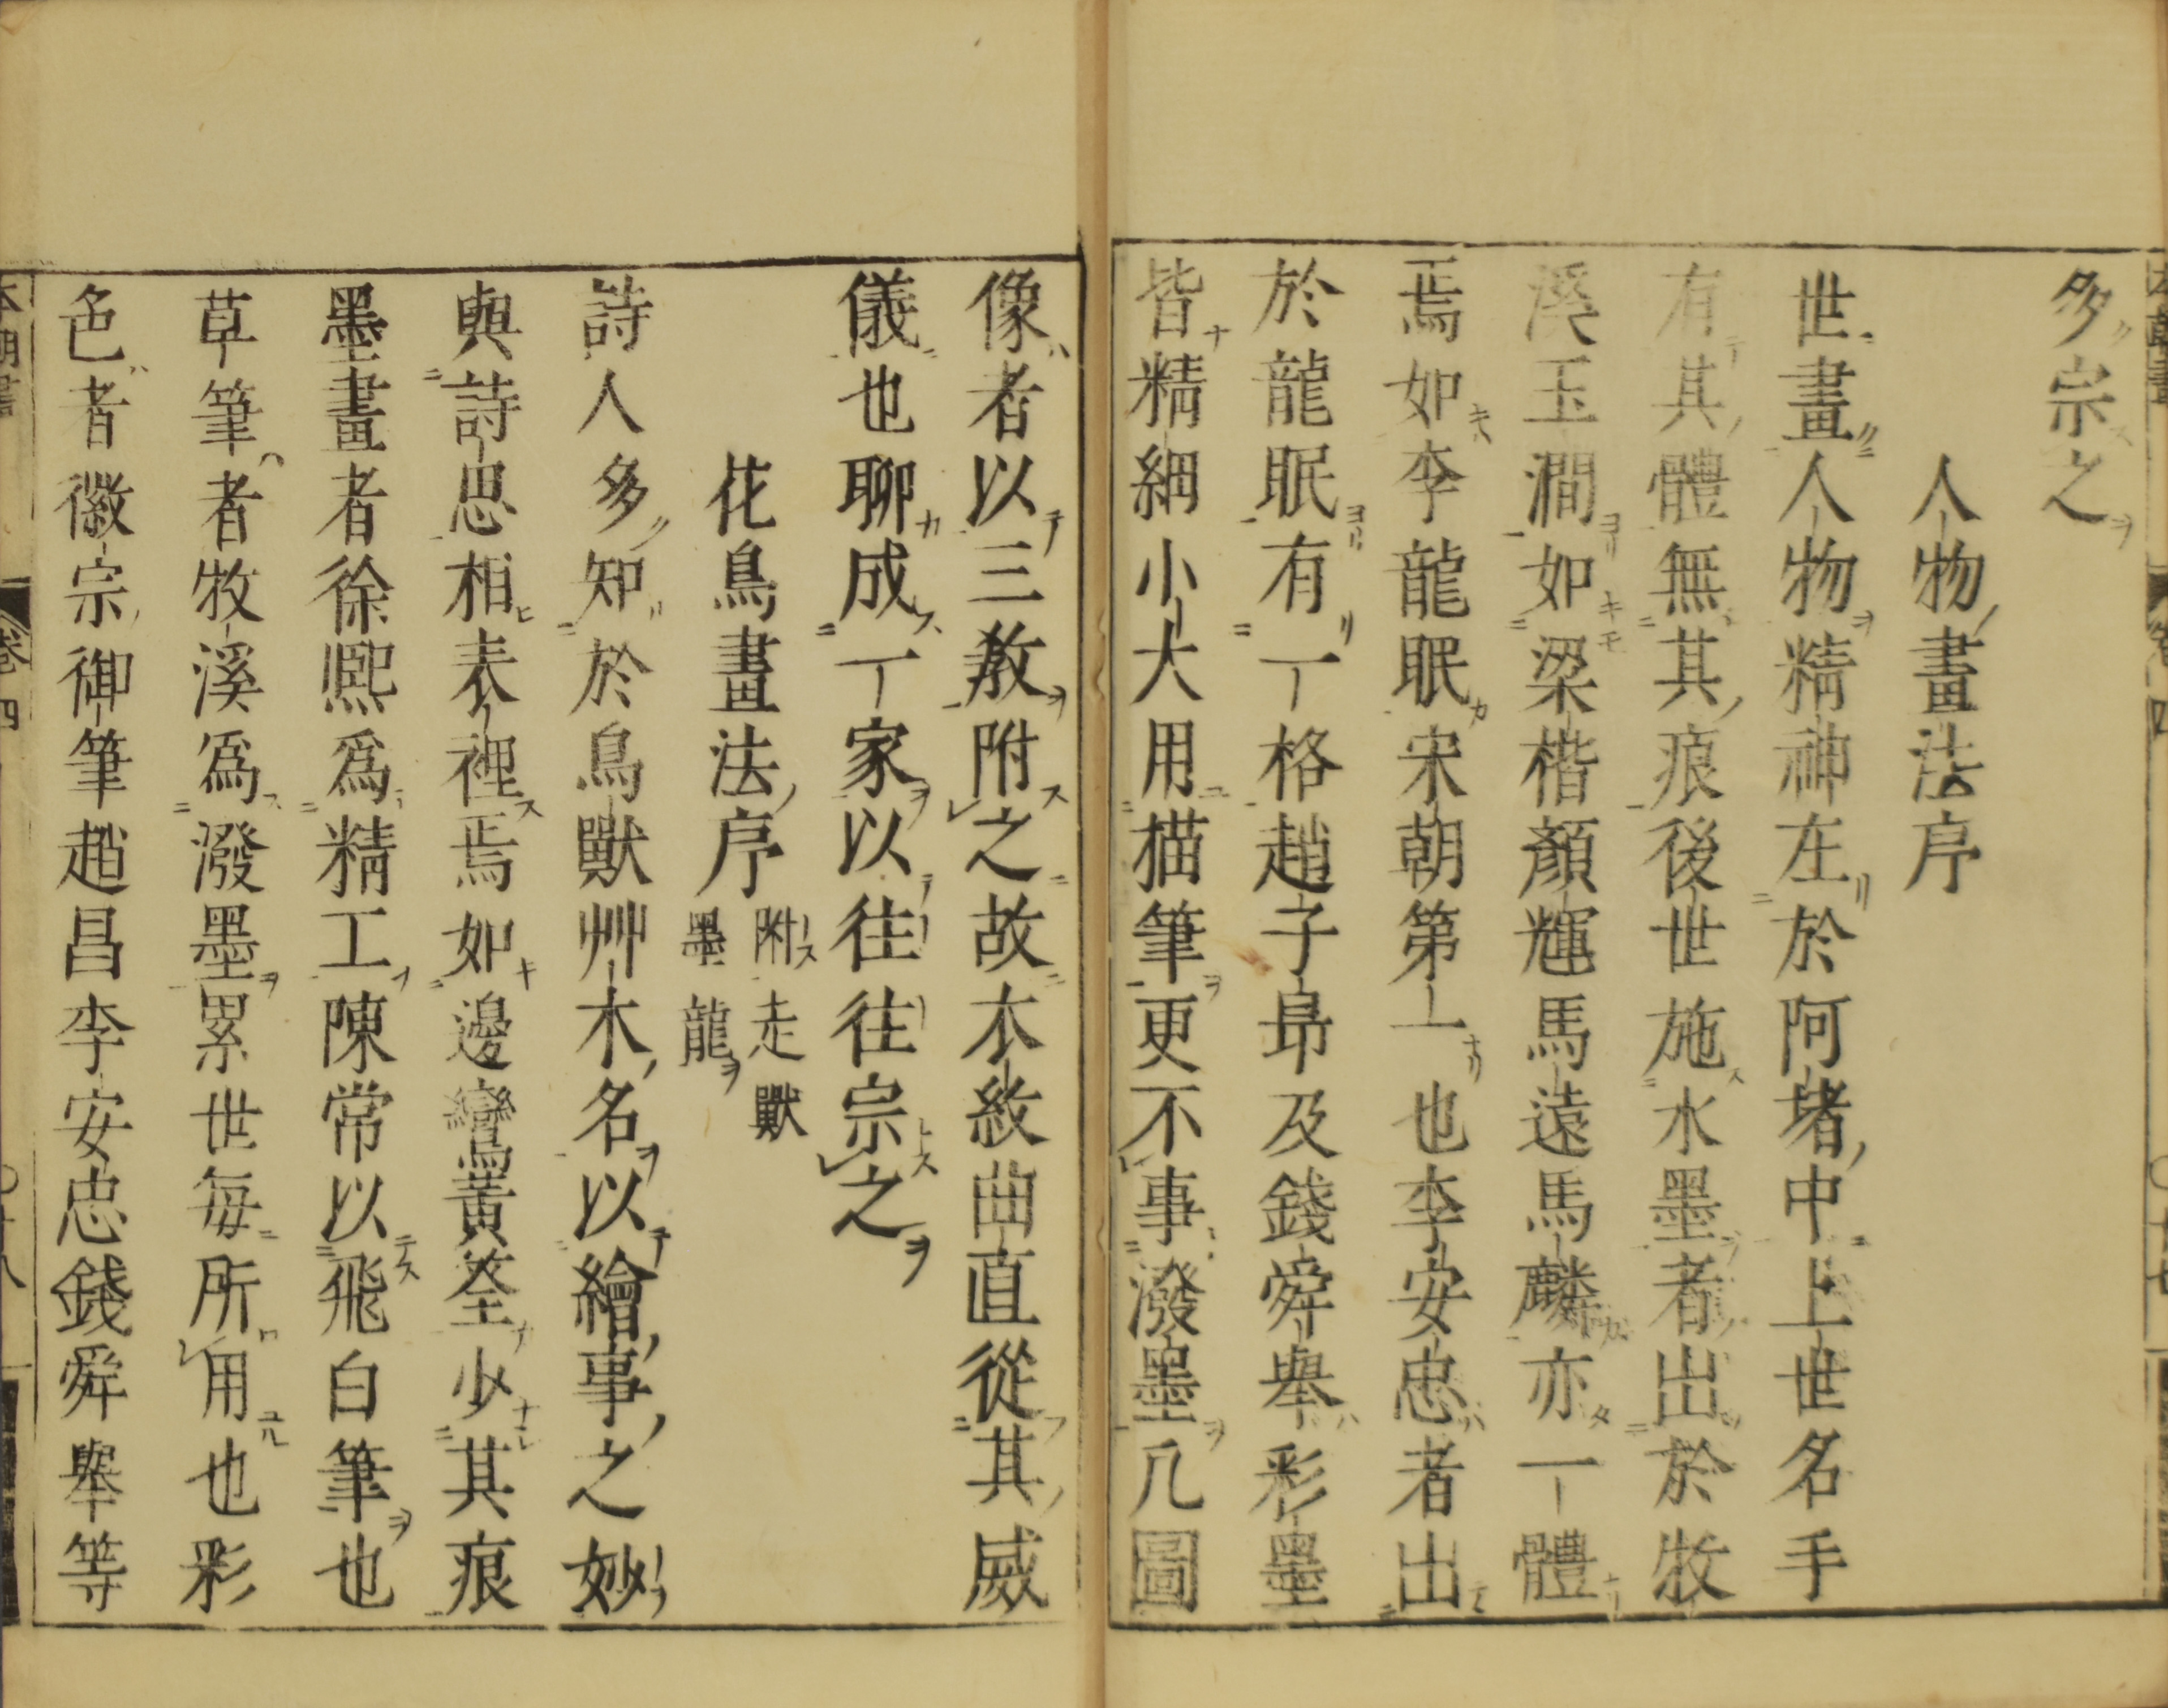 多宗之
人物畫法序
世畫人物精神在於阿堵中上世名手
有其體無其痕後世施水墨者出於牧
溪玉澗如梁楷顏輝馬遠馬麟亦一體
焉如李龍眠宋朝第一也李安忠者出
於龍眠有一格趙子昻及錢舜舉彩墨
皆精細小大用描筆更不事潑墨凡圖
像者以三教附之故本紋曲直從其威
儀也聊成一家以往往宗之
花鳥畫法序 附走獸墨龍
詩人多知於鳥獸艸木名以繪事之妙
與詩思相表裡焉如邊鸞黃筌少其痕
墨畫者徐熙爲精工陳常以飛白筆也
草筆者牧溪爲潑墨累世每所用也彩
色者徽宗御筆趙昌李安忠錢舜舉等
卷四